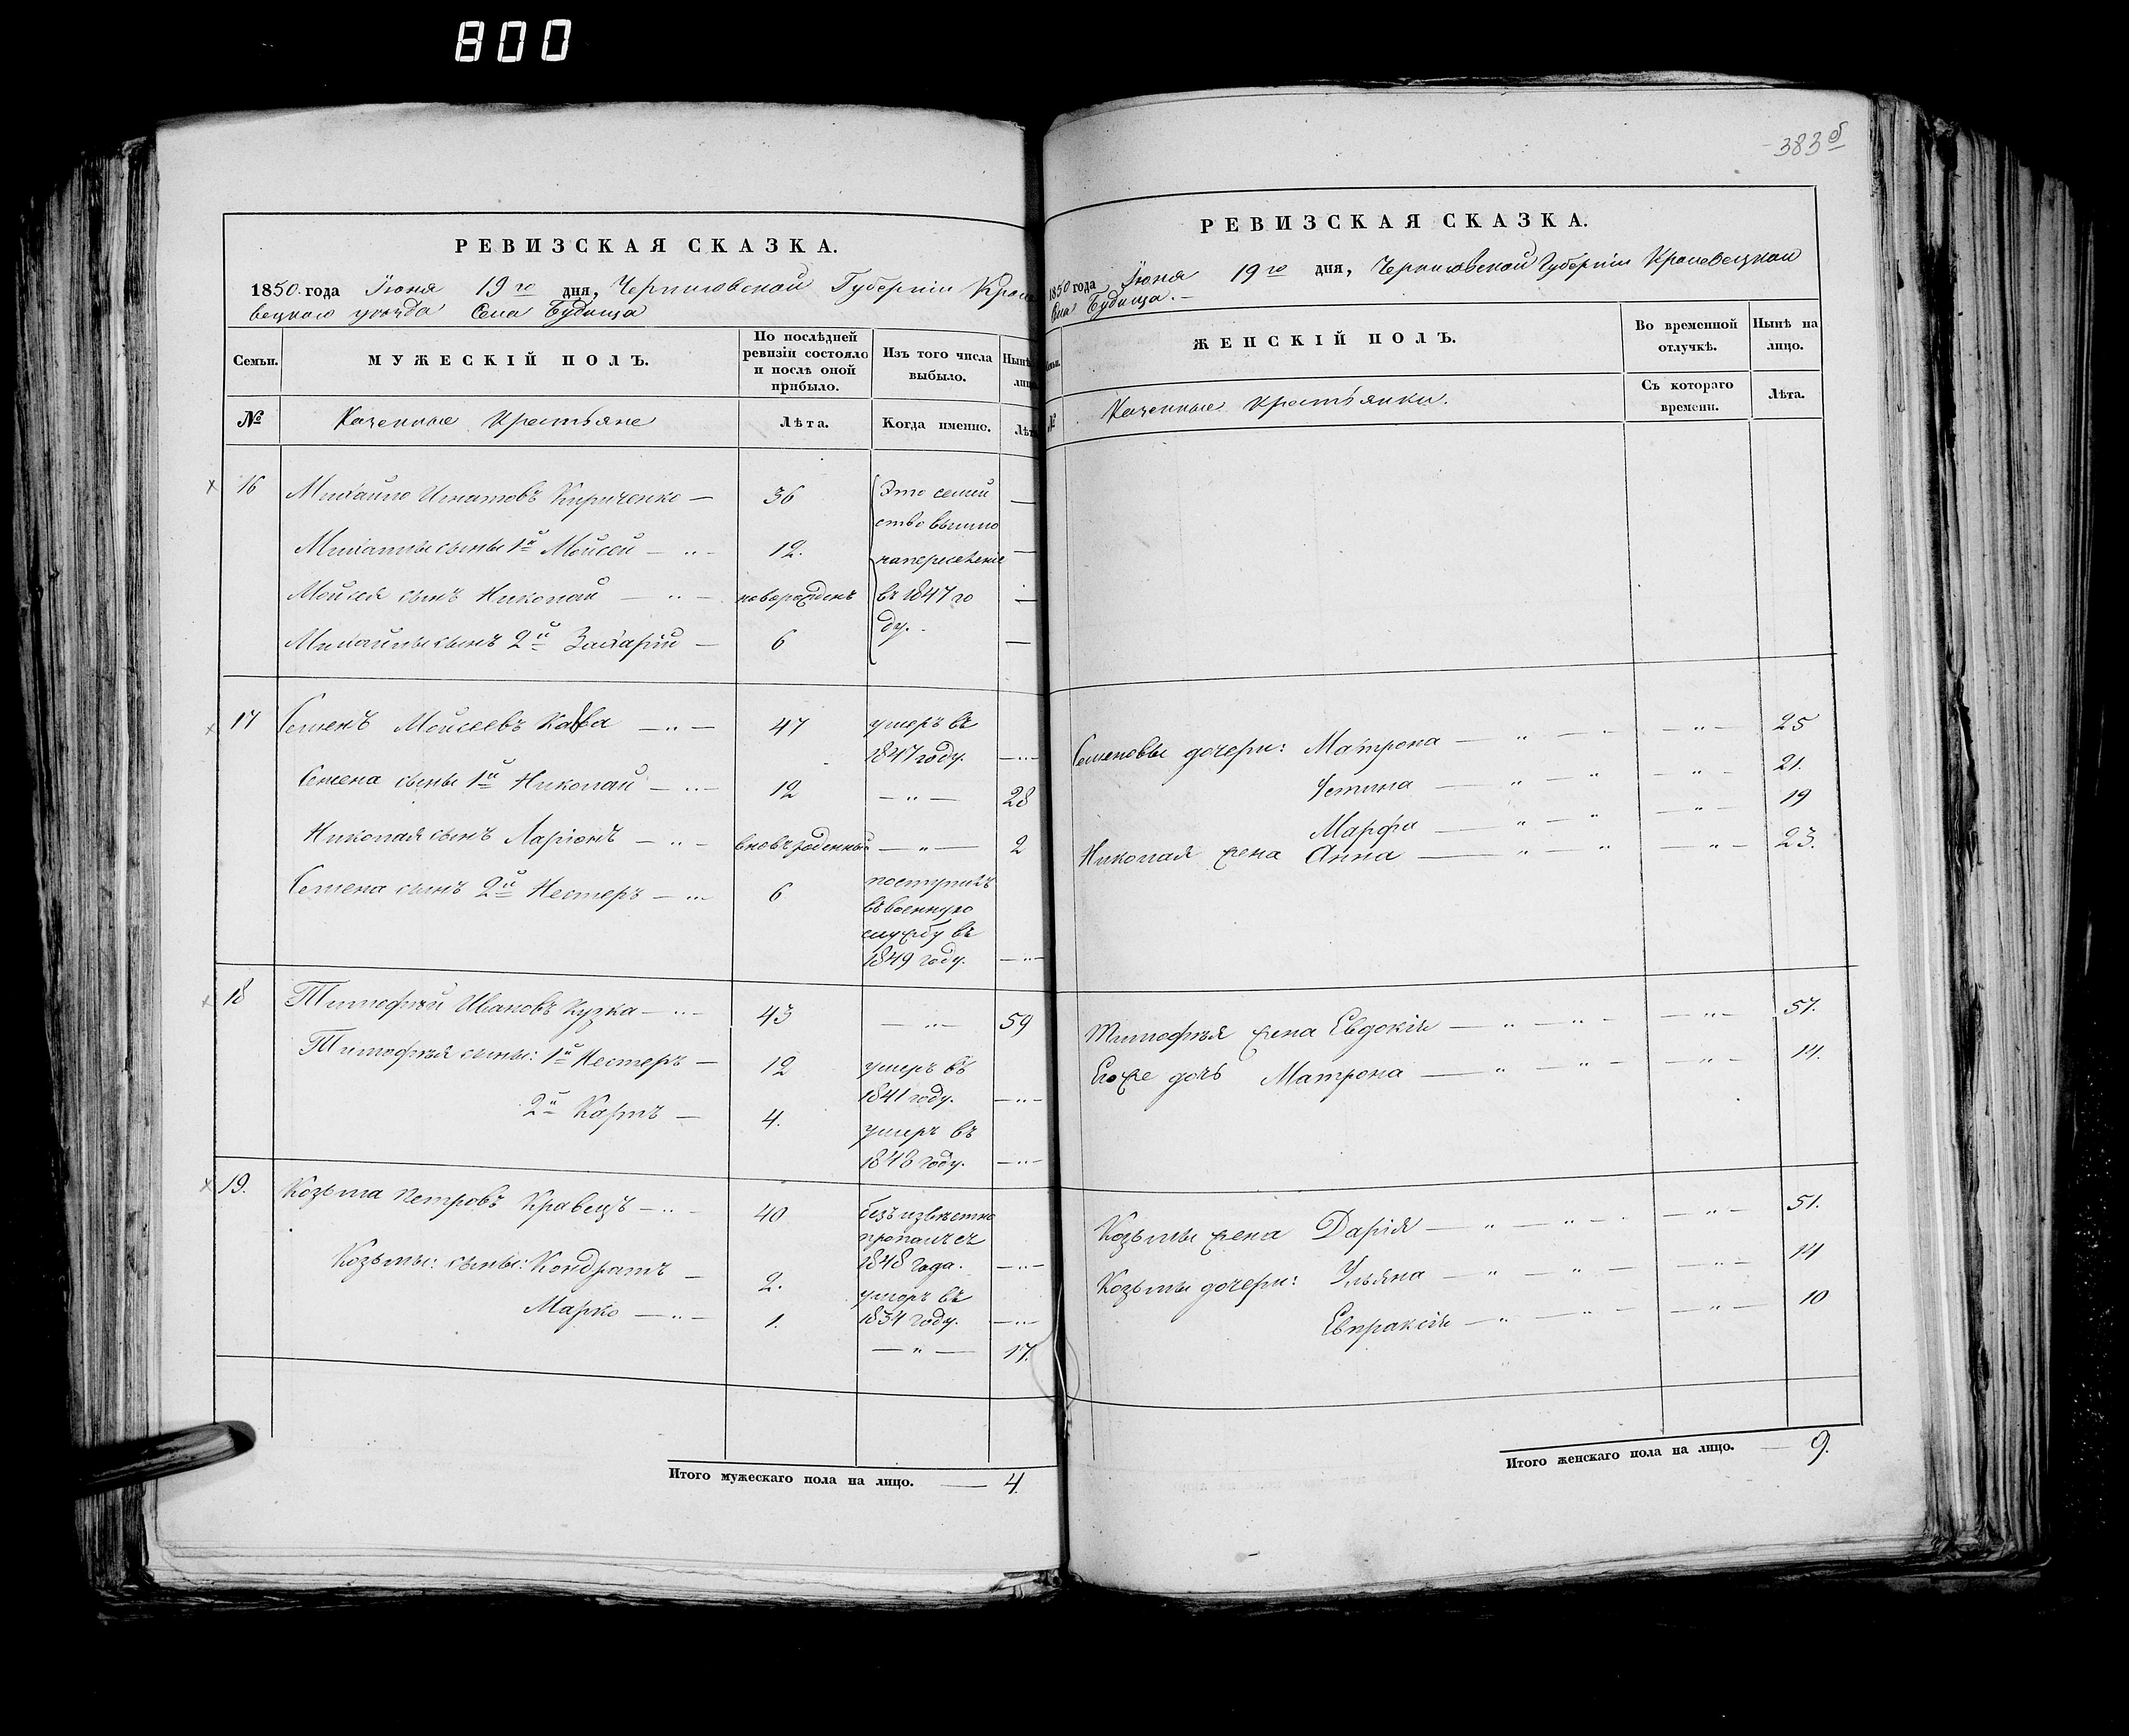 800
383 б
РЕВИЗСКАЯ СКАЗКА.
1850 года Іюня 19го дня, Черниговской Губерніи Кроле
вецкаго уѣзда Села Будища
Семьи.
МУЖЕСКІЙ ПОЛЪ.
По послѣдней
ревизіи состояло
и послѣ оной
прибыло.
Изъ того числа
выбыло.
Нынѣ
лицо
№
Казенные Крестьяне
Лѣта.
Когда именно.
Лѣт
16 Михайло Игнатовъ Кириченко — 36 Это семей —
ство вышло
Михайлы сыны 1й Мойсей — 12. —
на переселеніе
Мойсея сынъ Николай — новорожденъ въ 1847 го —
ду.
Михайлы сынъ 2й Захарій — 6 —
17 Семенъ Мойсеевъ — 47 умеръ въ
1847 году. —
Семена сыны 1й Николай — 12 — 28
Николая сынъ Ларіонъ — вновърожденный — 2
Семена сынъ 2й Нестеръ — 6 поступилъ
въ военную
службу въ
1849 году. —
18 Тимофѣй Ивановъ Кузка — 43 — 59
Тимофѣя сыны: 1й Нестеръ — 12 умеръ въ
1841 году. —
2й Карпъ — 4. умеръ въ
1848 году. —
19. Козьма Петровъ Кравецъ — 40 безъизвѣстно
пропалъ съ
1848 года. —
Козьмы: сыны: Кондратъ — 2. умеръ въ
Марко — 1. 1834 году. —
— 17.
Итого мужескаго пола на лицо. — 4.
РЕВИЗСКАЯ СКАЗКА.
1850 года Іюня 19го дня, Черниговской Губерніи Кролевецкаго
Села Будища. —
ЖЕНСКІЙ ПОЛЪ.
Во временной
отлучкѣ.
Нынѣ на
лицо.
Съ котораго
времени.
Лѣта.
№
Казенные Крестьянки.
Семеновы дочери: Матрона — 25
Устина — 21.
Марфа — 19
Николая жена Анна — 23.
Тимофѣя жена Евдокія — 57.
Егоже дочь Матрона — 14.
Козьмы жена Дарія — 51.
Козьмы дочери: Ульяна — 14
Евпраксія — 10
Итого женскаго пола на лицо. — 9.